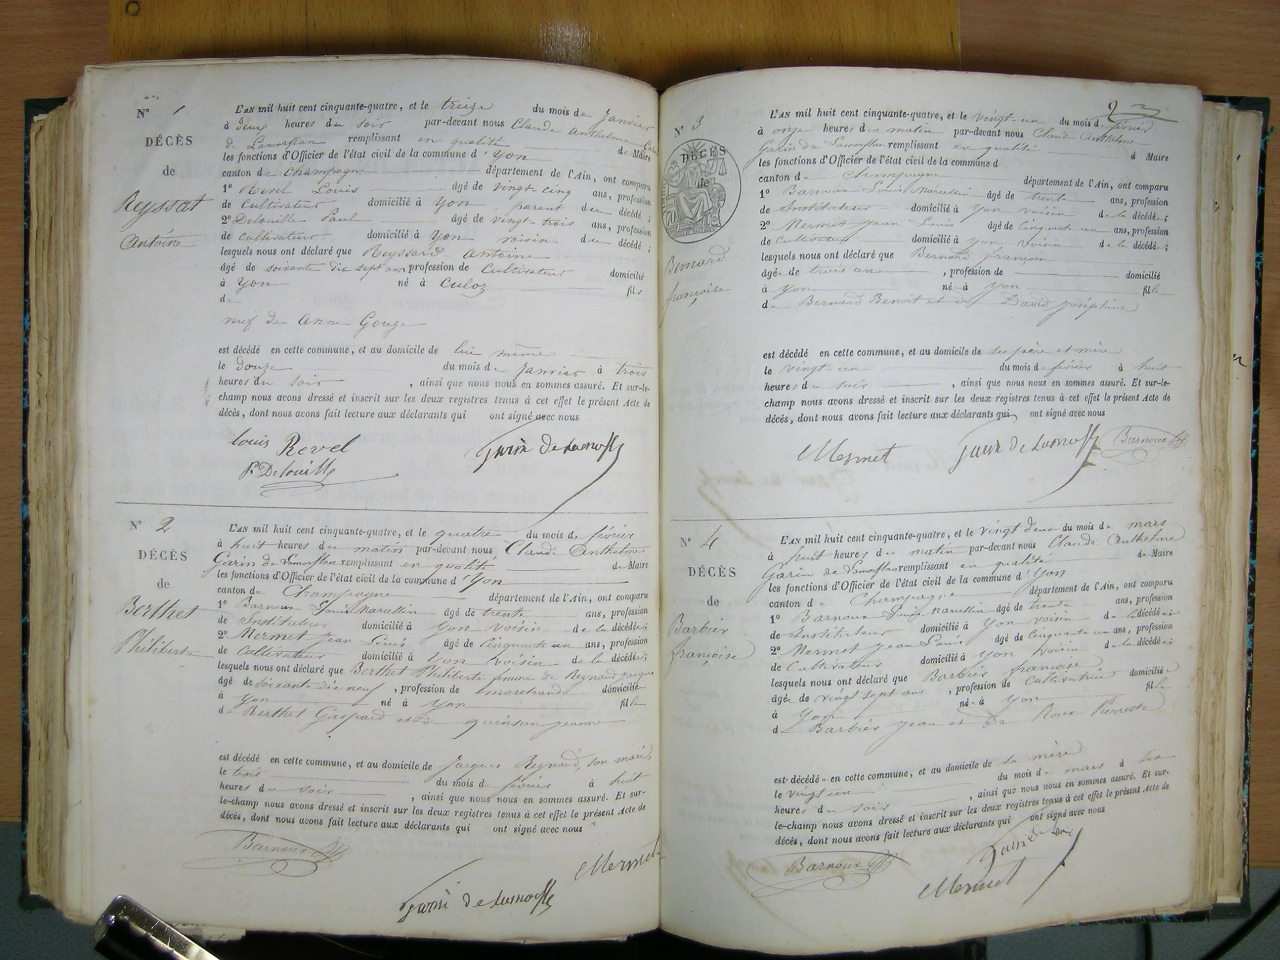 N° 1
DÉCÈS
de
Reyssat
Antoine
L'AN mil huit cent cinquante-quatre, et le treize du mois de Janvier
à deux heures du soir par-devant nous Claude Anthelme
de Lamoflan remplissant en qualité de Maire
les fonctions d'Officier de l'état civil de la commune d'Yon
canton de Champagne département de l'Ain, ont comparu
1° Revel Louis âgé de vingt cinq ans, profession
de Cultivateur domicilié à Yon parent du décédé ;
2° Delouille Paul âgé de vingt trois ans, profession
de cultivateur domicilié à Yon voisin du décédé ;
lesquels nous ont déclaré que Reyssard Antoine
âgé de soixante dix sept ans profession de Cultivateur domicilié
à Yon né à Culoz fils
de
veuf de Anne Gouge
est décédé en cette commune, et au domicile de lui même
le douze du mois de janvier à trois
heures du soir , ainsi que nous nous en sommes assuré. Et sur-le-
champ nous avons dressé et inscrit sur les deux registres tenus à cet effet le présent Acte de
décès, dont nous avons fait lecture aux déclarants qui ont signé avec nous
Louis Revel Garin de Lamofl
P. Delouille
N° 2
DÉCÈS
de
Berthet
Philiberte
L'AN mil huit cent cinquante-quatre, et le quatre du mois de février
à huit heures du matin par-devant nous Claude Anthelme
Garin de Lamoflan remplissant en qualité de Maire
les fonctions d'Officier de l'état civil de la commune d'Yon
canton de Champagne département de l'Ain, ont comparu
1° Barnoux Louis Marcellin âgé de trente ans, profession
de Instituteur domicilié à Yon voisin de la décédée ;
2° Mermet Jean Louis âgé de cinquante un ans, profession
de Cultivateur domicilié à Yon voisin de la décédée ;
lesquels nous ont déclaré que Berthet Philiberte femme de Reynaud Jacques
âgé de soixante dix neuf , profession de marchande domiciliée
à Yon né à Yon fille
de Berthet Gaspard et de jeanne
est décédé en cette commune, et au domicile de Jacques Reynaud, son mari
le trois du mois de février à huit
heures du soir , ainsi que nous nous en sommes assuré. Et sur-
le-champ nous avons dressé et inscrit sur les deux registres tenus à cet effet le présent Acte de
décès, dont nous avons fait lecture aux déclarants qui ont signé avec nous
Barnoux Mermet
Garin de Lamofl
2
N° 3
DÉCÈS
de
Bernard
françoise
L'AN mil huit cent cinquante-quatre, et le vingt-un du mois de février
à onze heures du matin par-devant nous Claude Anthelme
Garin de Lamoflan remplissant en qualité de Maire
les fonctions d'Officier de l'état civil de la commune d
canton de Champagne département de l'Ain, ont comparu
1° Barnoux Louis Marcellin âgé de trente ans, profession
de Instituteur domicilié à Yon voisin de la décédée ;
2° Mermet Jean Louis âgé de cinquante un ans, profession
de Cultivateur domicilié à Yon voisin de la décédée ;
lesquels nous ont déclaré que Bernard françoise
âgée de trois ans , profession de domicilié
à Yon née à Yon fille
de Bernard Benoit et de David Josephine
est décédé en cette commune, et au domicile de ses père et mère
le vingt-un du mois de février à huit
heures du soir , ainsi que nous nous en sommes assuré. Et sur-le-
champ nous avons dressé et inscrit sur les deux registres tenus à cet effet le présent Acte de
décès, dont nous avons fait lecture aux déclarants qui ont signé avec nous
Mermet Garin de Lamofl Barnoux
N° 4
DÉCÈS
de
Barbier
françoise
L'AN mil huit cent cinquante-quatre, et le vingt deux du mois de mars
à huit heures du matin par-devant nous Claude Anthelme
Garin de Lamoflan remplissant en qualité de Maire
les fonctions d'Officier de l'état civil de la commune d'Yon
canton de Champagne département de l'Ain, ont comparu
1° Barnoux Louis Marcellin âgé de trente ans, profession
de Instituteur domicilié à Yon voisin de la décédée ;
2° Mermet Jean Louis âgé de cinquante un ans, profession
de Cultivateur domicilié à Yon voisin de la décédée ;
lesquels nous ont déclaré que Barbier françoise
âgée de vingt sept ans , profession de Cultivatrice domiciliée
à Yon née à Yon fille
de Barbier Jean et de Roux Pierrette
est décédée en cette commune, et au domicile de sa mère
le vingt un du mois de mars à
heures du soir , ainsi que nous nous en sommes assuré. Et sur-
le-champ nous avons dressé et inscrit sur les deux registres tenus à cet effet le présent Acte de
décès, dont nous avons fait lecture aux déclarants qui ont signé avec nous
Barnoux Garin de
Mermet